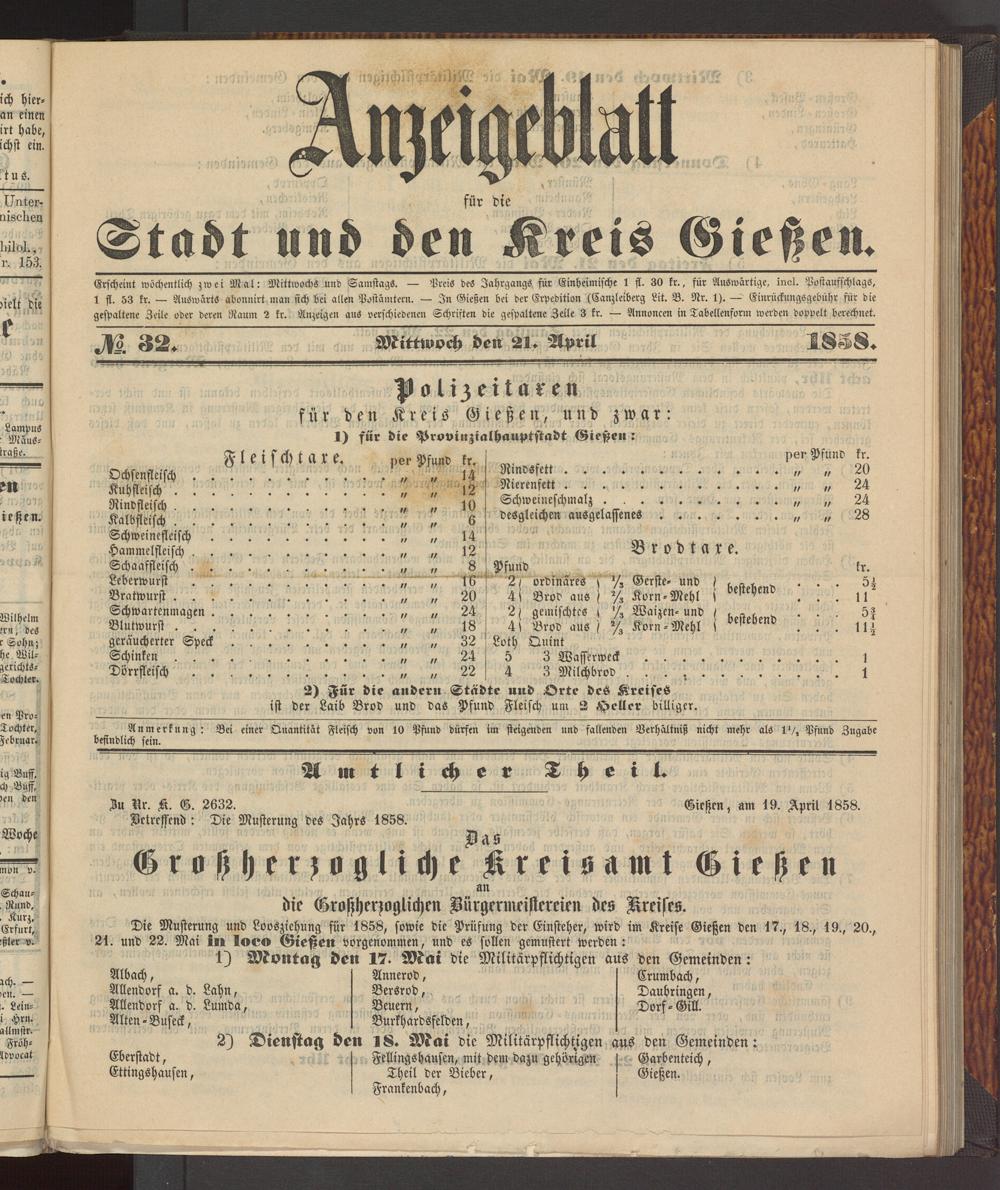 Anzeigeblatt
für die
Stadt und den Kreis Gießen.
Erscheint wöchentlich zwei Mal: Mittwochs und Samstags. — Preis des Jahrgangs für Einheimische 1 fl. 30 kr., für Auswärtige, incl. Postaufschlags,
1 fl. 53 kr. — Auswärts abonnirt man sich bei allen Postämtern. — In Gießen bei der Expedition (Canzleiberg Lit. B. Nr. 1). — Einrückungsgebühr für die
gespaltene Zeile oder deren Raum 2 kr. Anzeigen aus verschiedenen Schriften die gespaltene Zeile 3 kr. — Annoncen in Tabellenform werden doppelt berechnet.
№. 32. Mittwoch den 21. April 1858.
Polizeitaxen
für den Kreis Gießen, und zwar:
1) für die Provinzialhauptstadt Gießen:
Fleischtaxe. per Pfund kr.
Ochsenfleisch . . . . . . . . . . „ „ 14
Kuhfleisch . . . . . . . . . . „ „ 12
Rindfleisch . . . . . . . . . . „ „ 10
Kalbfleisch . . . . . . . . . . „ „ 6
Schweinefleisch . . . . . . . . . „ „ 14
Hammelfleisch . . . . . . . . . „ „ 12
Schaaffleisch . . . . . . . . . . „ „ 8
Leberwurst . . . . . . . . . . „ „ 16
Bratwurst . . . . . . . . . . „ „ 20
Schwartenmagen . . . . . . . . . „ „ 24
Blutwurst . . . . . . . . . . „ „ 18
geräucherter Speck . . . . . . . . „ „ 32
Schinken . . . . . . . . . . „ „ 24
Dörrfleisch . . . . . . . . . . „ „ 22
per Pfund kr.
Rindsfett . . . . . . . . . . „ „ 20
Nierenfett . . . . . . . . . . „ „ 24
Schweineschmalz . . . . . . . . . „ „ 24
desgleichen ausgelassenes . . . . . . „ „ 28
Brodtaxe.
Pfund kr.
2 } ordinäres } ⅓ Gerste- und } bestehend . . . 5½
4 } Brod aus } ⅔ Korn-Mehl } . . . 11
2 } gemischtes } ⅓ Waizen- und } bestehend . . . 5¾
4 } Brod aus } ⅔ Korn-Mehl } . . . 11½
Loth Quint
5 3 Wasserweck . . . . . . . . . 1
4 3 Milchbrod . . . . . . . . . 1
2) Für die andern Städte und Orte des Kreises
ist der Laib Brod und das Pfund Fleisch um 2 Heller billiger.
Anmerkung: Bei einer Quantität Fleisch von 10 Pfund dürfen im steigenden und fallenden Verhältniß nicht mehr als 1¼ Pfund Zugabe
befindlich sein.
Amtlicher Theil.
Zu Nr. K. G. 2632. Gießen, am 19. April 1858.
Betreffend: Die Musterung des Jahrs 1858.
Das
Großherzogliche Kreisamt Gießen
an
die Großherzoglichen Bürgermeistereien des Kreises.
Die Musterung und Loosziehung für 1858, sowie die Prüfung der Einsteher, wird im Kreise Gießen den 17., 18., 19., 20.,
21. und 22. Mai in loco Gießen vorgenommen, und es sollen gemustert werden:
1) Montag den 17. Mai die Militärpflichtigen aus den Gemeinden:
Albach,
Allendorf a. d. Lahn,
Allendorf a. d. Lumda,
Alten-Buseck,
Annerod,
Bersrod,
Beuern,
Burkhardsfelden,
Crumbach,
Daubringen,
Dorf-Gill.
2) Dienstag den 18. Mai die Militärpflichtigen aus den Gemeinden:
Eberstadt,
Ettingshausen,
Fellingshausen, mit dem dazu gehörigen
Theil der Bieber,
Frankenbach,
Garbenteich,
Gießen.